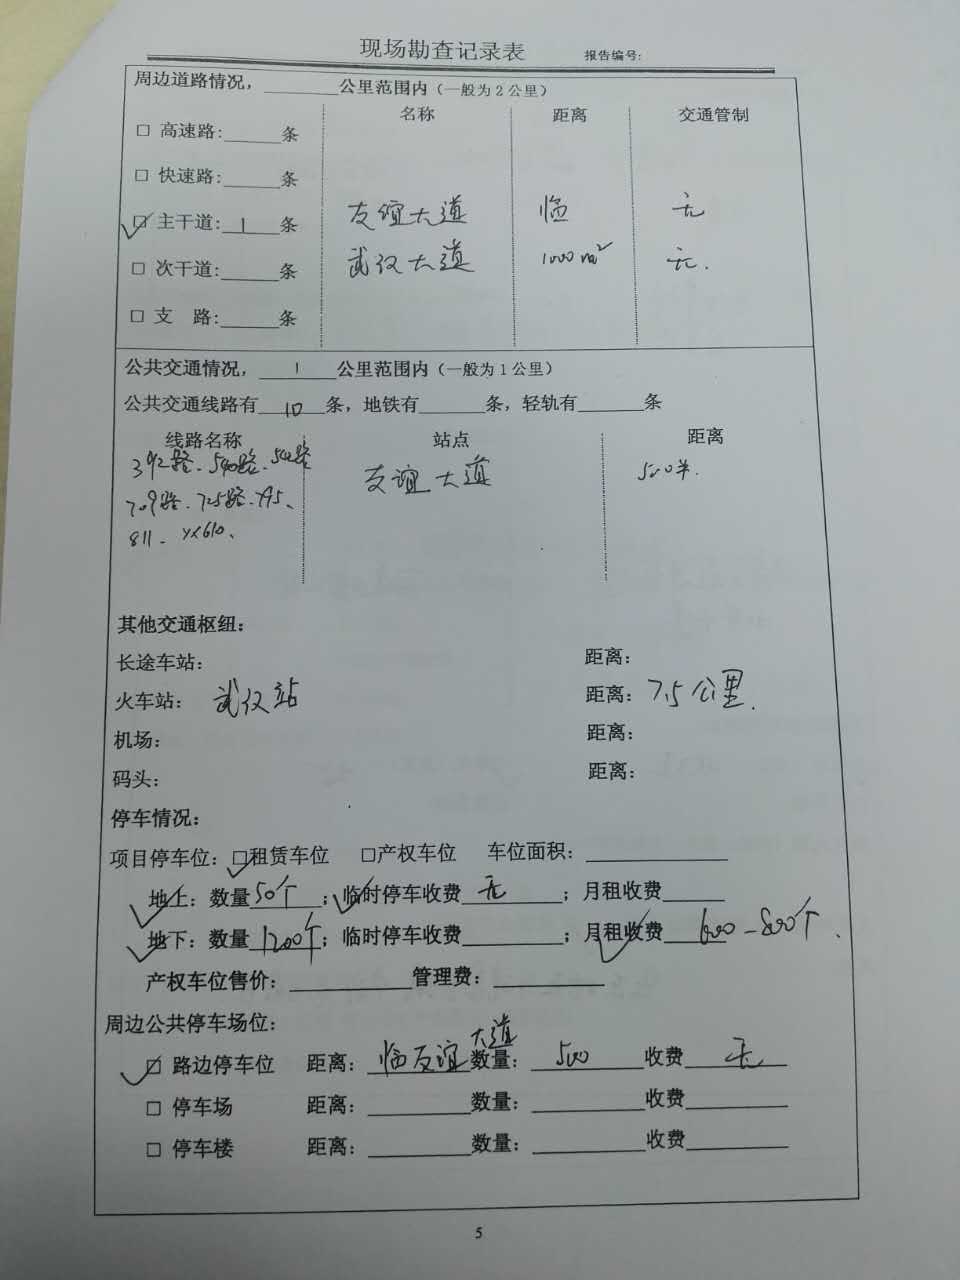 现场勘查记录表 报告编号:
周边道路情况，________公里范围内（一般为2公里）
名称 距离 交通管制
□ 高速路:______条
□ 快速路:______条
☑ 主干道: 1 条 友谊大道 临 无
□ 次干道:______条 武汉大道 1000m² 无.
□ 支 路:______条
公共交通情况， 1 公里范围内（一般为1公里）
公共交通线路有 10 条，地铁有______条，轻轨有______条
线路名称 站点 距离
392路、540路、542路 友谊大道 500米.
709路、725路、795、
811、YX610、
其他交通枢纽：
长途车站： 距离：
火车站： 武汉站 距离：7.5公里.
机场： 距离：
码头： 距离：
停车情况：
项目停车位：☑租赁车位 □产权车位 车位面积：________
☑地上：数量 50个 ；☑临时停车收费 无 ；月租收费______
☑地下：数量 1200个 ；临时停车收费________；☑月租收费 600-800/个.
产权车位售价：________ 管理费：________
周边公共停车场位：
☑ 路边停车位 距离： 临友谊大道 数量： 500 收费 无
□ 停车场 距离：________数量：________收费________
□ 停车楼 距离：________数量：________收费________
5